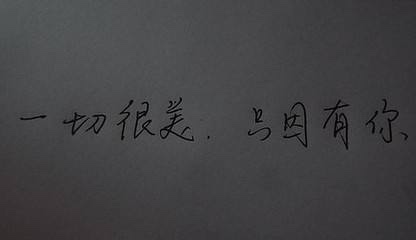 一切很美.只因有你.